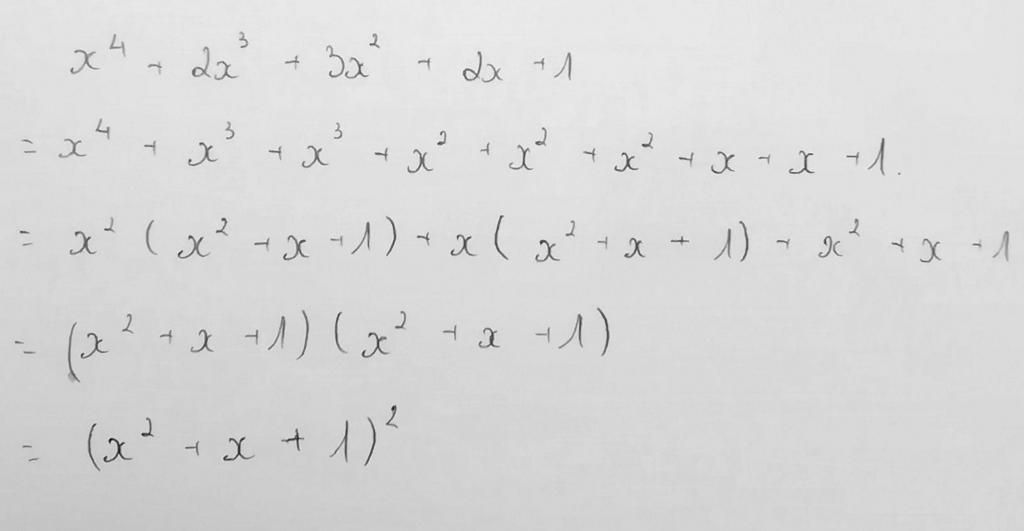 x⁴ + 2x³ + 3x² + 2x + 1
= x⁴ + x³ + x³ + x² + x² + x² + x + x + 1.
= x² (x² + x + 1) + x (x² + x + 1) + x² + x + 1
= (x² + x + 1) (x² + x + 1)
= (x² + x + 1)²